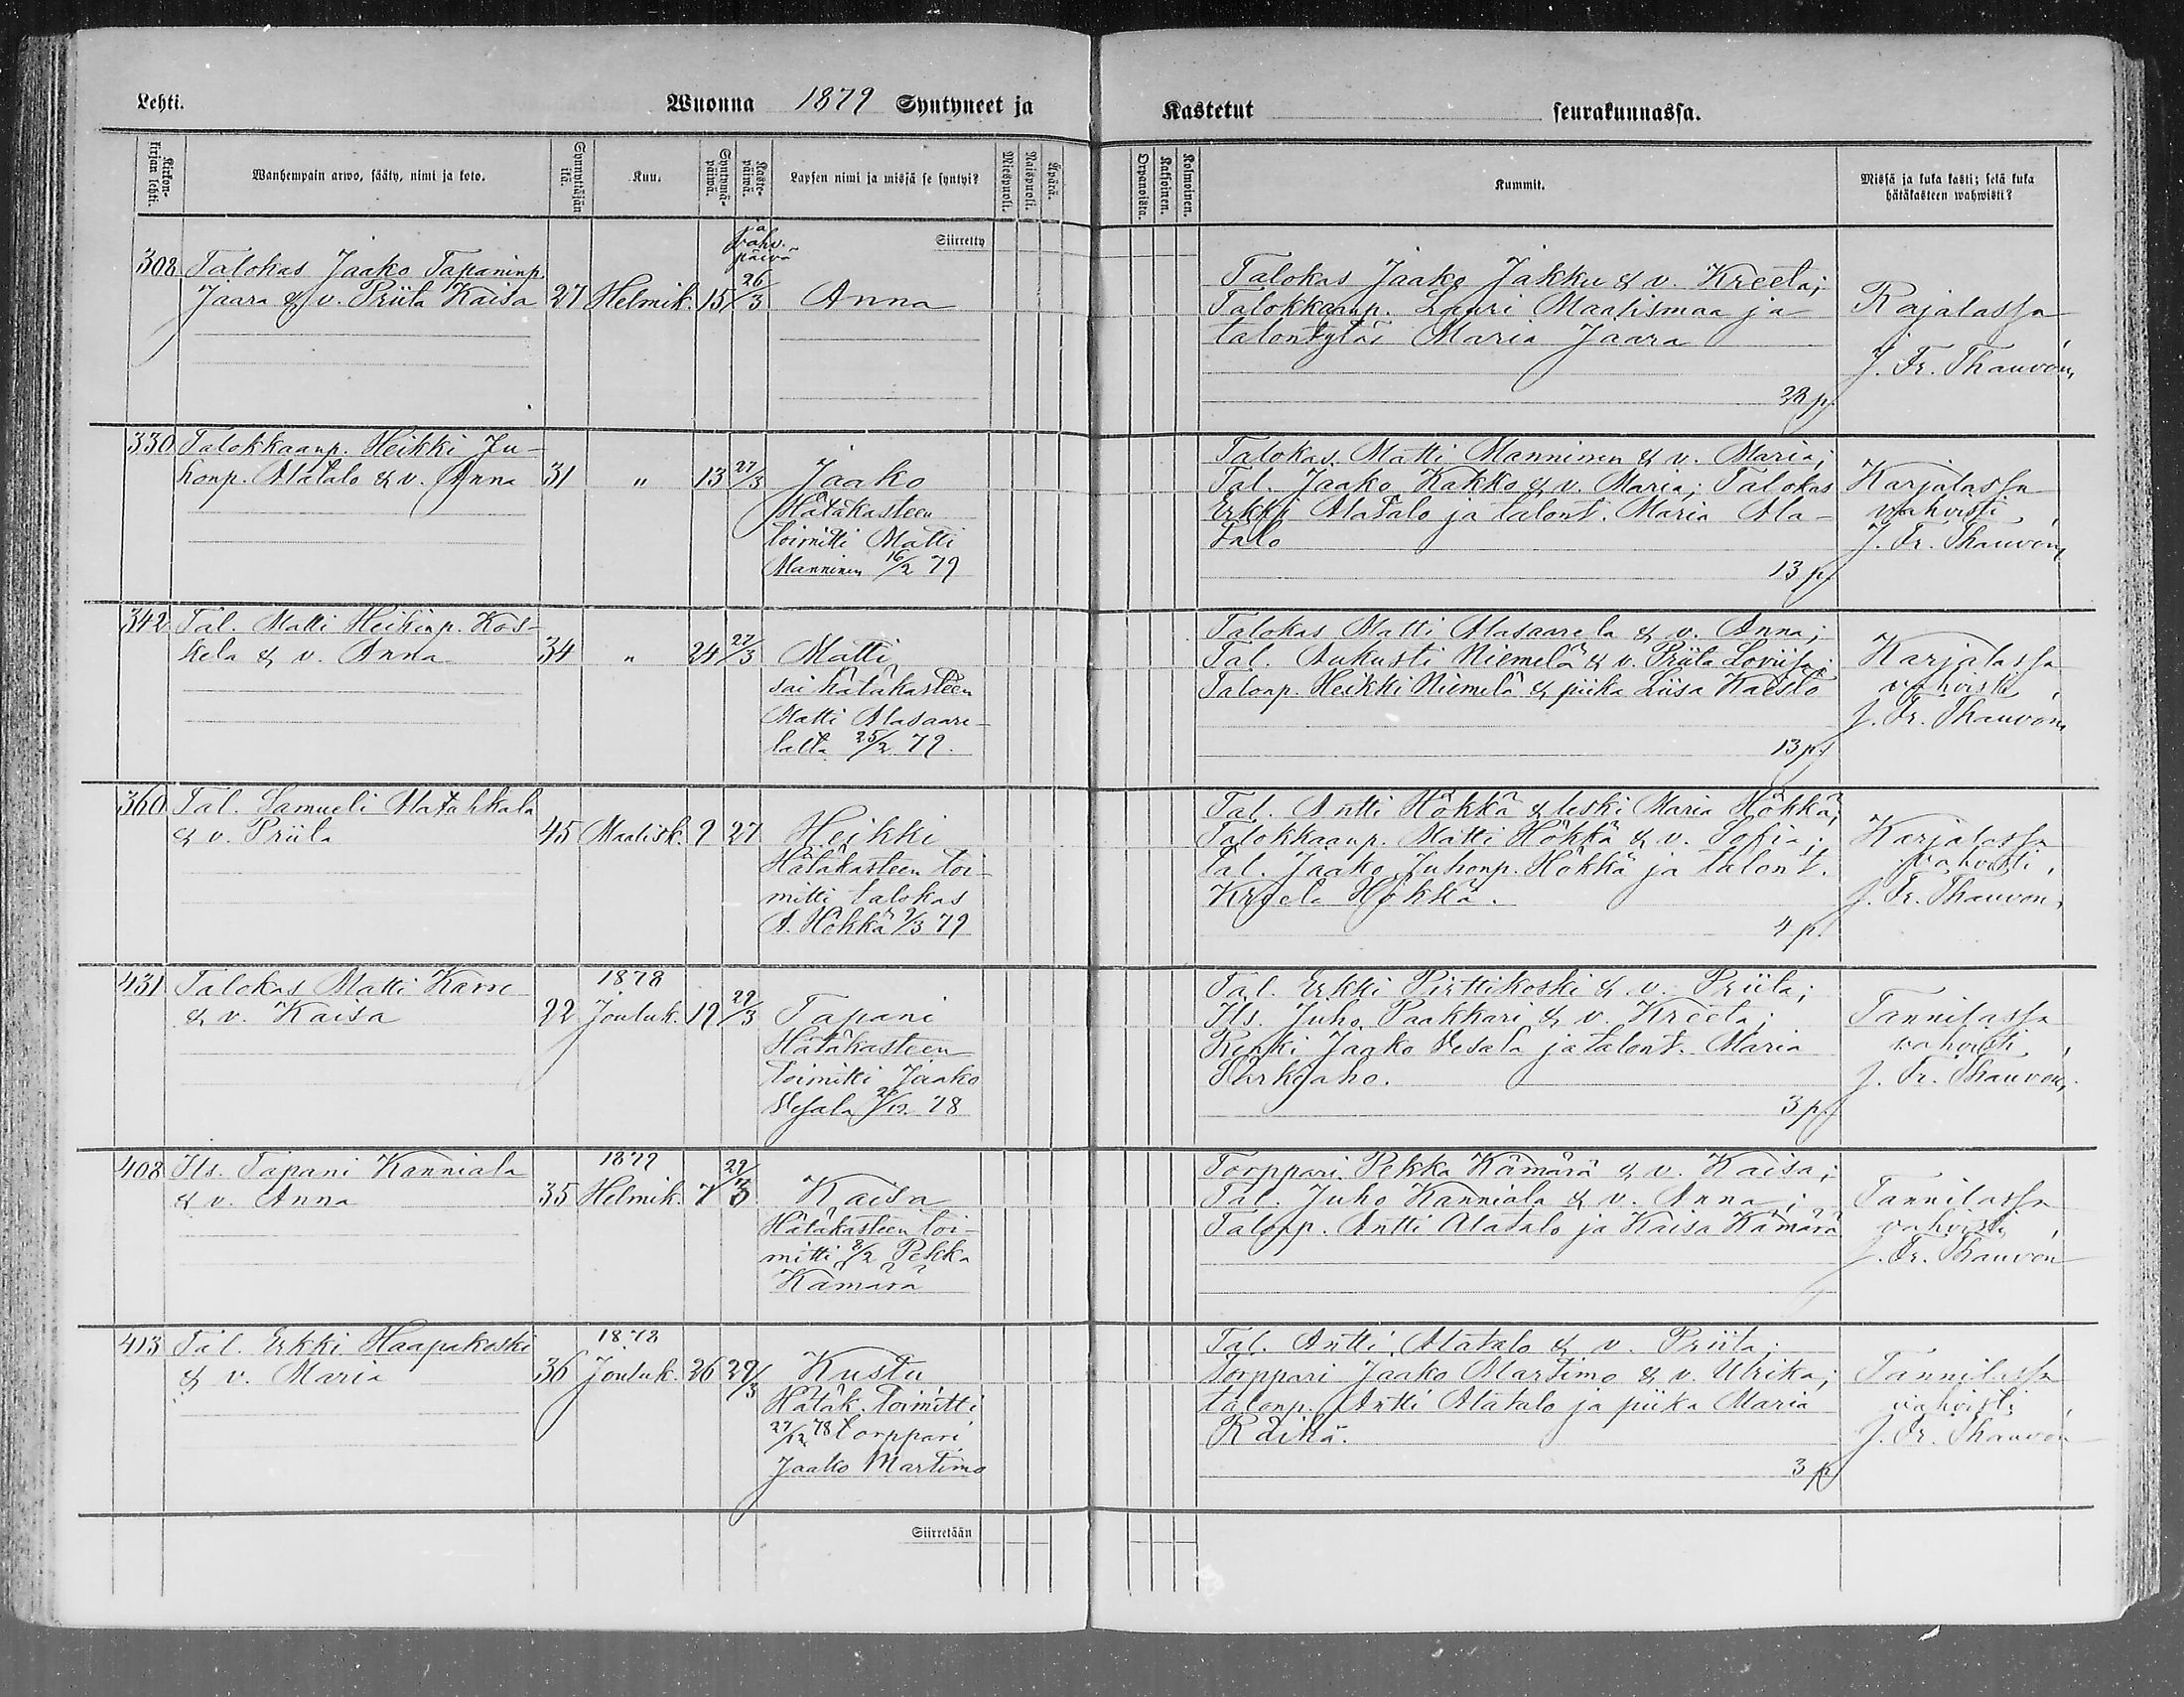 Lehti. Wuonna 1879 Syntyneet ja Kastetut seurakunnassa.
Kirkon-kirjan lehti.
Wanhempain arwo, sääty, nimi ja koto.
Synnyttäjän ikä.
Kuu.
Syntymä-päivä.
Kaste-päivä.
Lapsen nimi ja missä se syntyi?
Miespuoli.
Naispuoli.
Äpärä.
Orpanoista.
Kaksoinen.
Kolmoinen.
Kummit.
Missä ja kuka kasti; sekä kuka
hätäkasteen wahwisti?
ja
vahv.
päivä
Siirretty
308 Talokas Jaako Tapaninp.
Jaara & v. Priita Kaisa 27 Helmik. 15 26/3 Anna
Talokas Jaako Jakku & v. Kreeta;
Talokkaanp. Lauri Maalismaa ja
talontytär Maria Jaara
28 p.
Rajalassa
J. Fr. Thauvón,
330 Talokkaanp. Heikki Ju-
honp. Alatalo & v. Anna 31 " 13 27/3 Jaako
Hätäkasteen
toimitti Matti
Manninen 16/2 79
Talokas Matti Manninen & v. Maria;
Tal. Jaako Kakko & v. Maria; Talokas
Erkki Alatalo ja talont. Maria Ala-
talo
13 p.
Karjalassa
vahvisti
J. Fr. Thauvón,
342 Tal. Matti Heikinp. Kos-
kela & v. Anna 34 " 24 27/3 Matti
sai hätäkasteen
Matti Alasaare-
lalta 25/2 79.
Talokas Matti Alasaarela & v. Anna;
Tal. Aukusti Niemelä & v. Priita Loviisa;
Talonp. Heikki Niemelä & piika Liisa Kaisto
13 p.
Karjalassa
vahvisti
J. Fr. Thauvón,
360 Tal. Samueli Alatahkala
& v. Priita 45 Maalisk. 9 27 Heikki
Hätäkasteen toi-
mitti talokas
A. Hökkä 9/3 79
Tal. Antti Hökkä & leski Maria Hökkä;
Talokkaanp. Matti Hökkä & v. Sofia;
tal. Jaako Juhonp. Hökkä ja talont.
Kreeta Hökkä.
4 p.
Karjalassa
vahvisti,
J. Fr. Thauvón,
431 Talokas Matti Karve
& v. Kaisa 22 1878 Jouluk. 19 29/3 Tapani
Hätäkasteen
toimitti Jaako
Vesala 78
Tal. Erkki Pirttikoski & v. Priita;
Its. Juho Paakkari & v. Kreeta;
Renki Jaako Vesala ja talont. Maria
Särkiaho.
3 p.
Tannilassa
vahvisti
J. Fr. Thauvón,
408 Its. Tapani Kanniala
& v. Anna 35 1879 Helmik. 7 29/3 Kaisa
Hätäkasteen toi-
mitti 8/2 Pekka
Kämärä
Torppari Pekka Kämärä & v. Kaisa;
Tal. Juho Kanniala & v. Anna;
Talonp. Antti Alatalo ja Kaisa Kämärä
Tannilassa
vahvisti,
J. Fr. Thauvón
413 Tal. Erkki Haapakoski
& v. Maria 36 1878 Jouluk. 26 29/3 Kustu
Hätäk. toimitti
27/12 78 torppari
Jaako Martimo
Tal. Antti Alatalo & v. Priita;
Torppari Jaako Martimo & v. Ulrika;
talonp. Antti Alatalo ja piika Maria
Räihä.
3 p.
Tannilassa
vahvisti
J. Fr. Thauvón
Siirretään